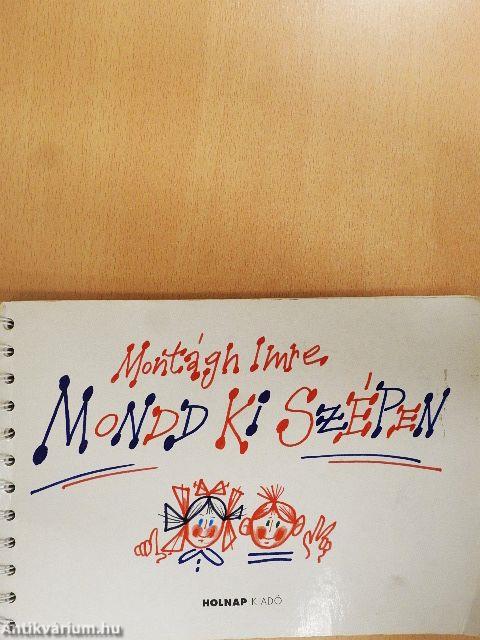 Montágh Imre
MONDD KI SZÉPEN
HOLNAP KIADÓ
Antikvárium.hu